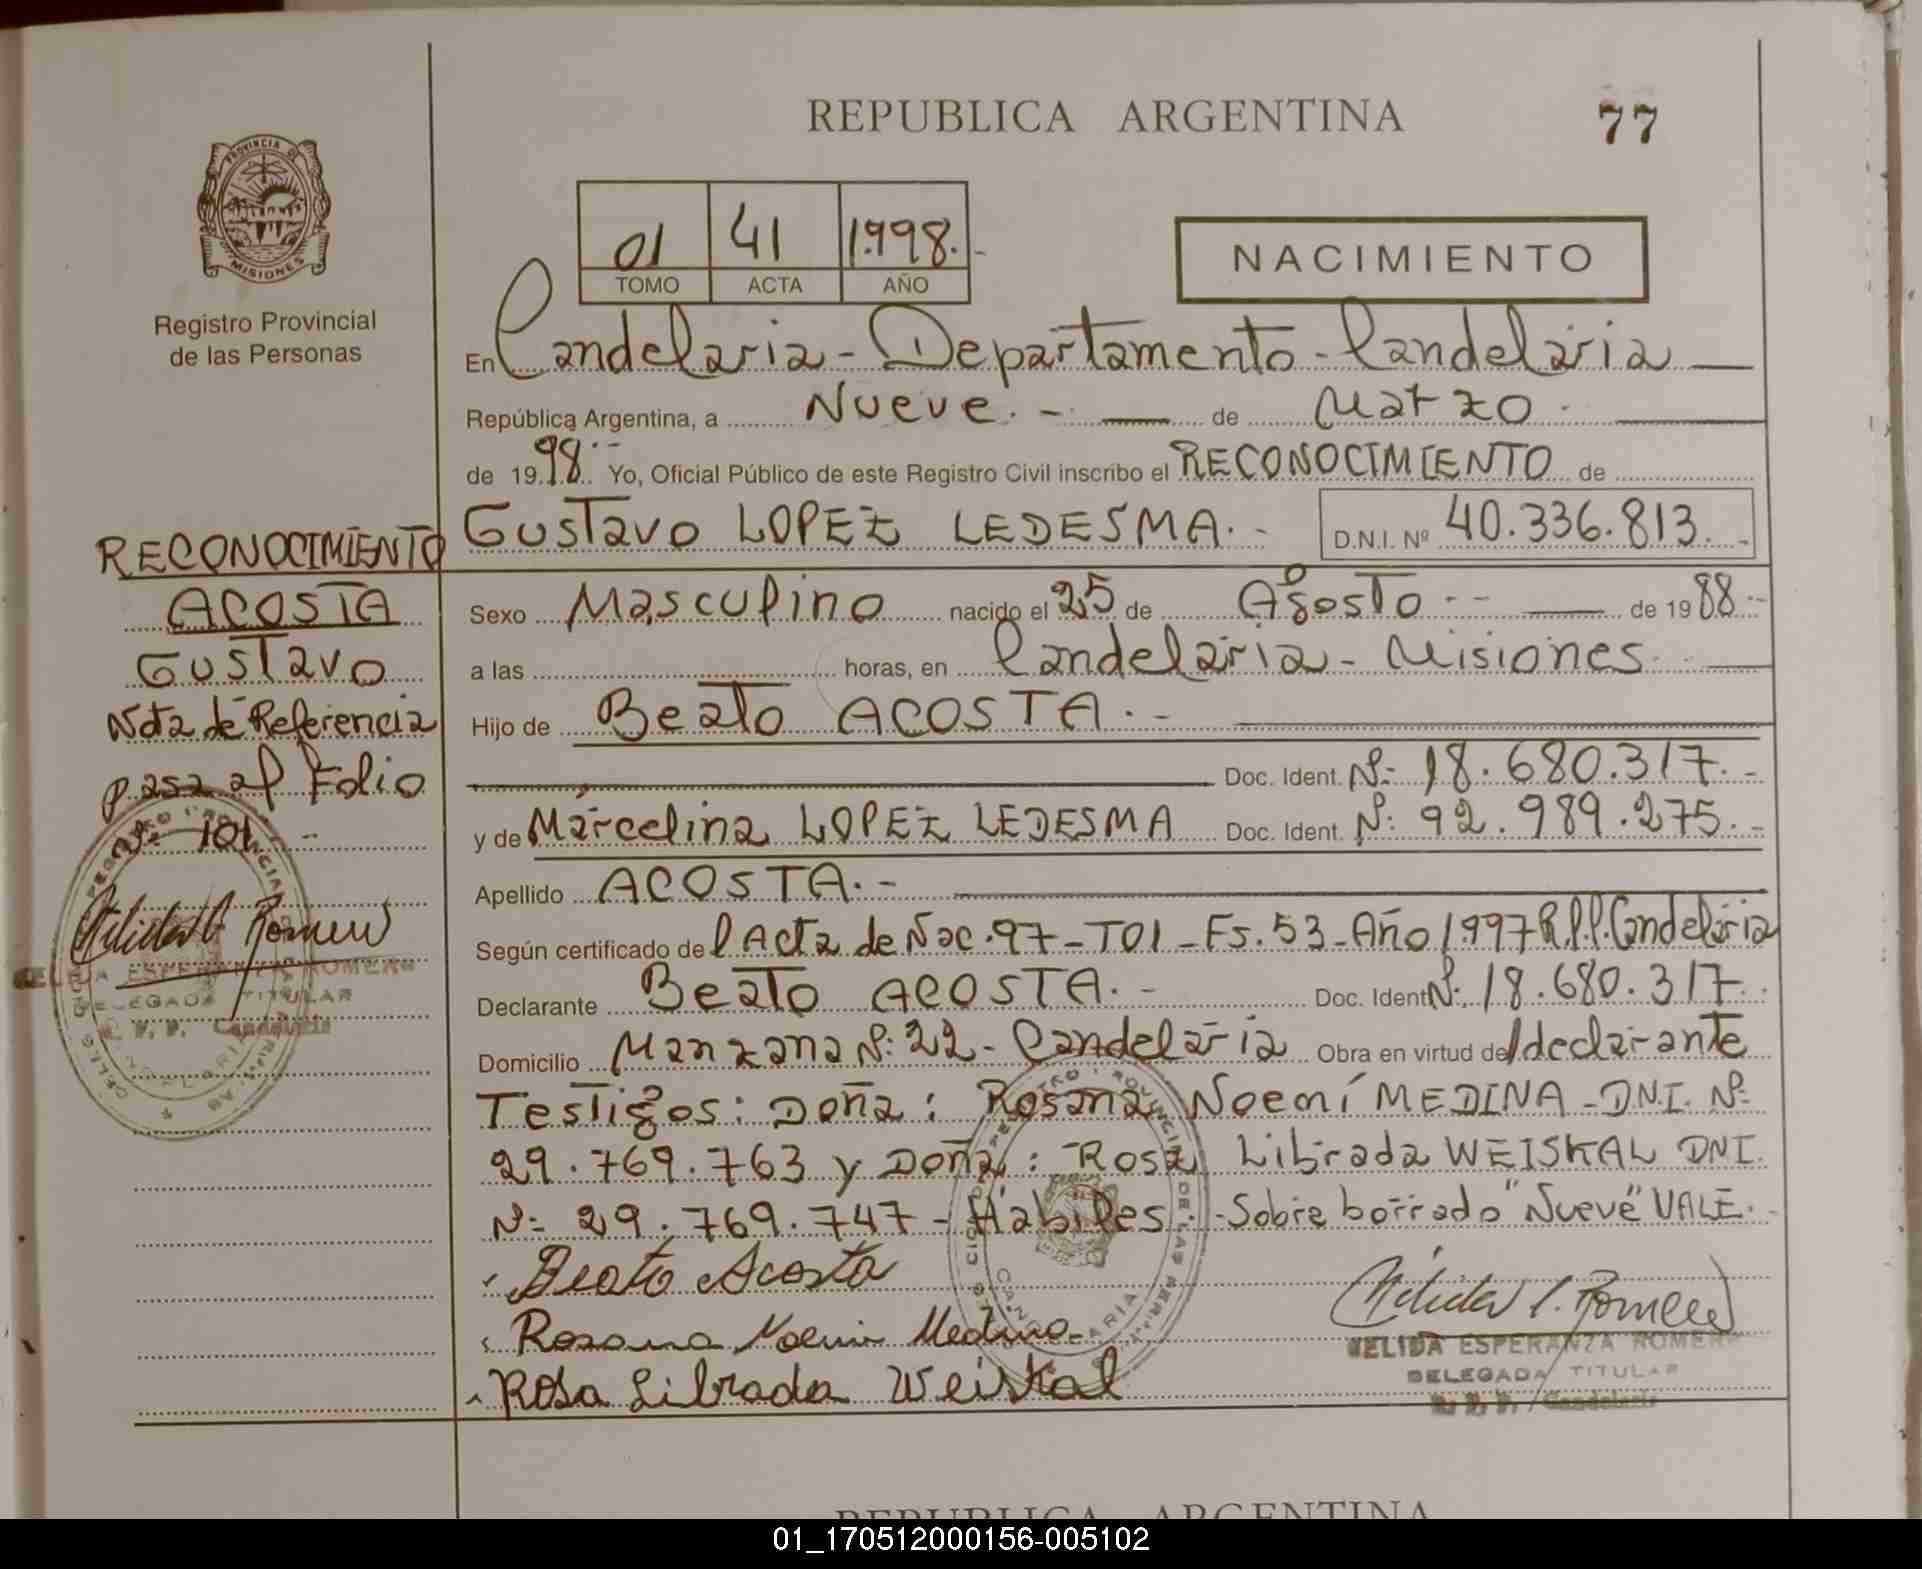 REPUBLICA ARGENTINA
77
PROVINCIA DE
MISIONES
Registro Provincial
de las Personas
01 41 1.998.-
TOMO ACTA AÑO
NACIMIENTO
En Candelaria - Departamento - Candelaria
República Argentina, a Nueve. - de Marzo.
de 19 98.- Yo, Oficial Público de este Registro Civil inscribo el RECONOCIMIENTO de
Gustavo LOPEZ LEDESMA.- D.N.I. Nº 40.336.813.-
Sexo Masculino nacido el 25 de Agosto -- de 19 88.-
a las horas, en Candelaria - Misiones.
Hijo de Beato ACOSTA.-
Doc. Ident. Nº: 18.680.317.-
y de Marcelina LOPEZ LEDESMA Doc. Ident. Nº: 92.989.275.-
Apellido ACOSTA.-
Según certificado de l Acta de Nac. 97 - T01 - Fs. 53 - Año 1.997 R.P.P. Candelaria
Declarante Beato ACOSTA.- Doc. Ident Nº: 18.680.317.
Domicilio Manzana Nº: 22 - Candelaria Obra en virtud de l declarante
Testigos: Doña: Rosana Noemí MEDINA - DNI. Nº
29.769.763 y Doña: Rosa Librada WEISKAL DNI.
Nº: 29.769.747 - Hábiles. - Sobre borrado "Nueve" VALE.-
Beato Acosta
Rosana Noemi Medina
Rosa Librada Weiskal
NELIDA ESPERANZA ROMERO
DELEGADA TITULAR
R. P. P. Candelaria
RECONOCIMIENTO
ACOSTA
Gustavo
Nota de Referencia
pasa al Folio
Nº: 101 -
NELIDA ESPERANZA ROMERO
DELEGADA TITULAR
R. P. P. Candelaria
REPUBLICA ARGENTINA
01_170512000156-005102